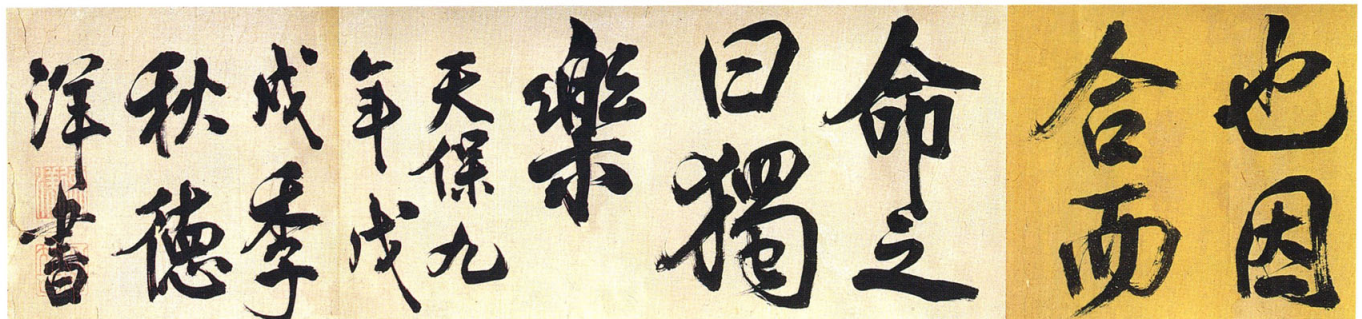 也因
合而
命之
曰獨
樂
天保九
年戊
戌季
秋徳
洋書